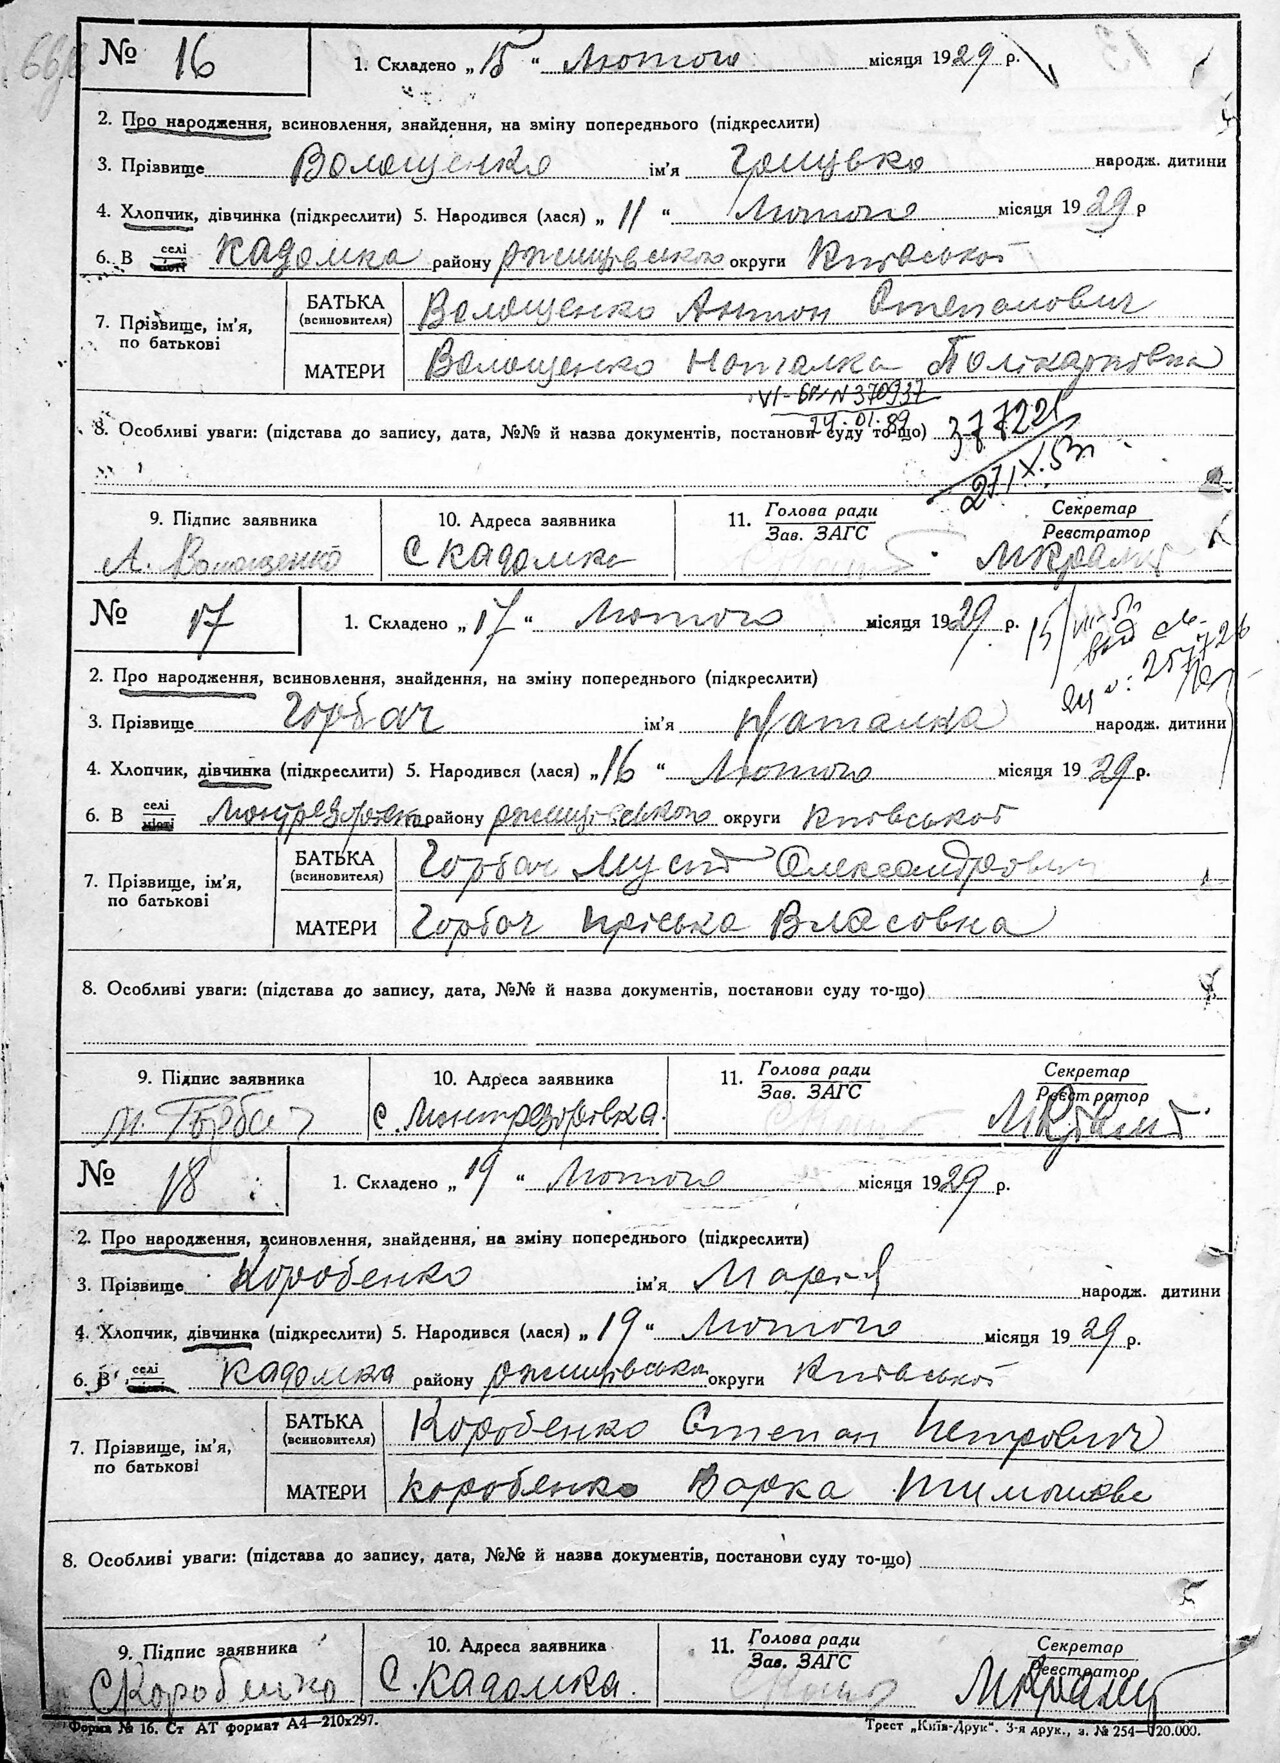 № 16
1. Складено „15“ Лютого місяця 1929 р.
2. Про народження, всиновлення, знайдення, на зміну попереднього (підкреслити)
3. Прізвище Волощенко ім'я Грицько народж. дитини
4. Хлопчик, дівчинка (підкреслити) 5. Народився (лася) „11“ Лютого місяця 1929 р
6. В селі Кадомка району Ржищівського округи Київської
7. Прізвище, ім'я, по батькові
БАТЬКА (всиновителя) Волощенко Антон Степанович
МАТЕРИ Волощенко Наталка Полікарповна
VI-БК N 370937
24.01.89
8. Особливі уваги: (підстава до запису, дата, №№ й назва документів, постанови суду то-що)
9. Підпис заявника
А. Волощенко
10. Адреса заявника
С Кадомка
11. Голова ради
Зав. ЗАГС
Секретар
Реєстратор
№ 17
1. Складено „17“ Лютого місяця 1929 р.
2. Про народження, всиновлення, знайдення, на зміну попереднього (підкреслити)
3. Прізвище Горбач ім'я Наталка народж. дитини
4. Хлопчик, дівчинка (підкреслити) 5. Народився (лася) „16“ Лютого місяця 1929 р.
6. В селі району Ржищівського округи Київської
7. Прізвище, ім'я, по батькові
БАТЬКА (всиновителя) Горбач Мусій Олександрович
МАТЕРИ Горбач Пріська Власовна
8. Особливі уваги: (підстава до запису, дата, №№ й назва документів, постанови суду то-що)
9. Підпис заявника
М. Горбач
10. Адреса заявника
с. Монтрезорівка.
11. Голова ради
Зав. ЗАГС
Секретар
Реєстратор
№ 18
1. Складено „19“ Лютого місяця 1929 р.
2. Про народження, всиновлення, знайдення, на зміну попереднього (підкреслити)
3. Прізвище Коробенко ім'я Марія народж. дитини
4. Хлопчик, дівчинка (підкреслити) 5. Народився (лася) „19“ Лютого місяця 1929 р.
6. В селі Кадомка району округи Київської
7. Прізвище, ім'я, по батькові
БАТЬКА (всиновителя) Коробенко Степан Петрович
МАТЕРИ Коробенко Варка
8. Особливі уваги: (підстава до запису, дата, №№ й назва документів, постанови суду то-що)
9. Підпис заявника
С Коробенко
10. Адреса заявника
С. Кадомка.
11. Голова ради
Зав. ЗАГС
Секретар
Реєстратор
Форма № 16. Ст АТ формат А4—210х297.
Трест „Київ-Друк“. 3-я друк., з. № 254—20.000.